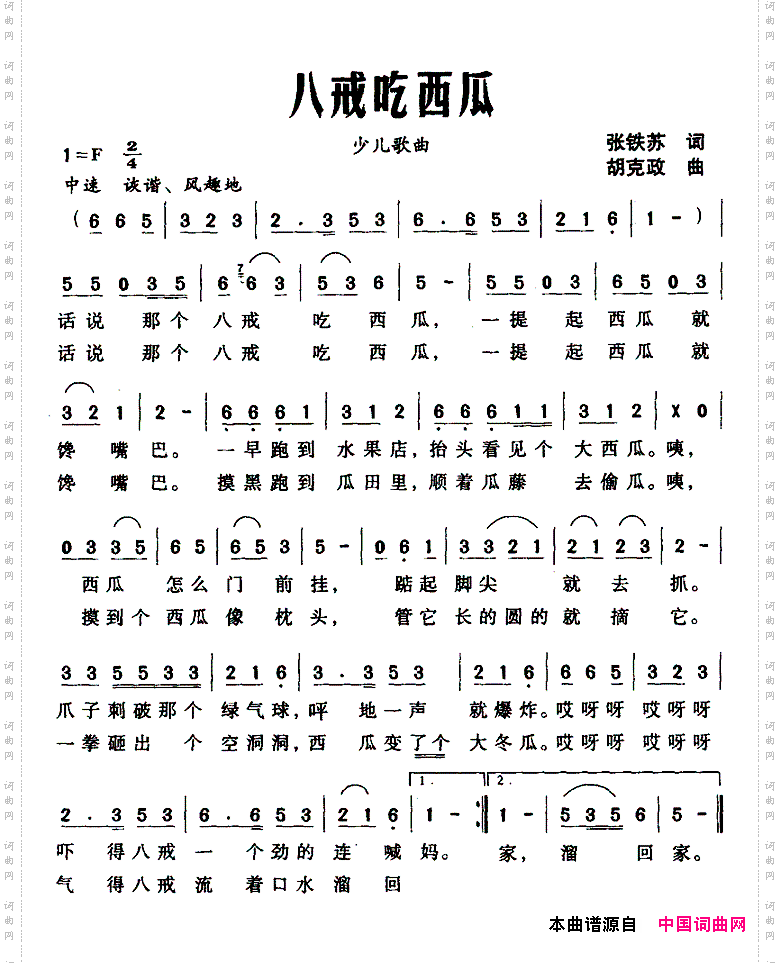 八戒吃西瓜
少儿歌曲
1=F 2/4
张铁苏 词
胡克政 曲
中速 诙谐、风趣地
( 6 6 5 | 3 2 3 | 2 . 3 5 3 | 6 . 6 5 3 | 2 1 6 | 1 - ) |
5 5 0 3 5 | 6 7 6 3 | 5 3 6 | 5 - | 5 5 0 3 | 6 5 0 3 |
话说 那个 八戒 吃 西瓜, 一提 起西瓜 就
话说 那个 八戒 吃 西瓜, 一提 起西瓜 就
3 2 1 | 2 - | 6 6 6 1 | 3 1 2 | 6 6 6 1 1 | 3 1 2 | X 0 |
馋 嘴 巴。 一早跑到 水果店,抬头看见个 大西瓜。咦,
馋 嘴 巴。 摸黑跑到 瓜田里,顺着瓜藤 去偷瓜。咦,
0 3 3 5 | 6 5 | 6 5 3 | 5 - | 0 6 1 | 3 3 2 1 | 2 1 2 3 | 2 - |
西瓜 怎么 门 前挂, 踮起 脚尖 就 去 抓。
摸到个 西瓜 像 枕头, 管它 长的圆的 就 摘 它。
3 3 5 5 3 3 | 2 1 6 | 3 . 3 5 3 | 2 1 6 | 6 6 5 | 3 2 3 |
爪子刺破那个 绿气球,呯 地一声 就爆炸。哎呀呀 哎呀呀
一拳砸出 个 空洞洞,西 瓜变了个 大冬瓜。哎呀呀 哎呀呀
1. 2.
2 . 3 5 3 | 6 . 6 5 3 | 2 1 6 | 1 - :‖ 1 - | 5 3 5 6 | 5 - ‖
吓 得八戒 一 个劲的 连 喊妈。 家, 溜 回家。
气 得八戒 流 着口水 溜 回
本曲谱源自 中国词曲网
词曲网